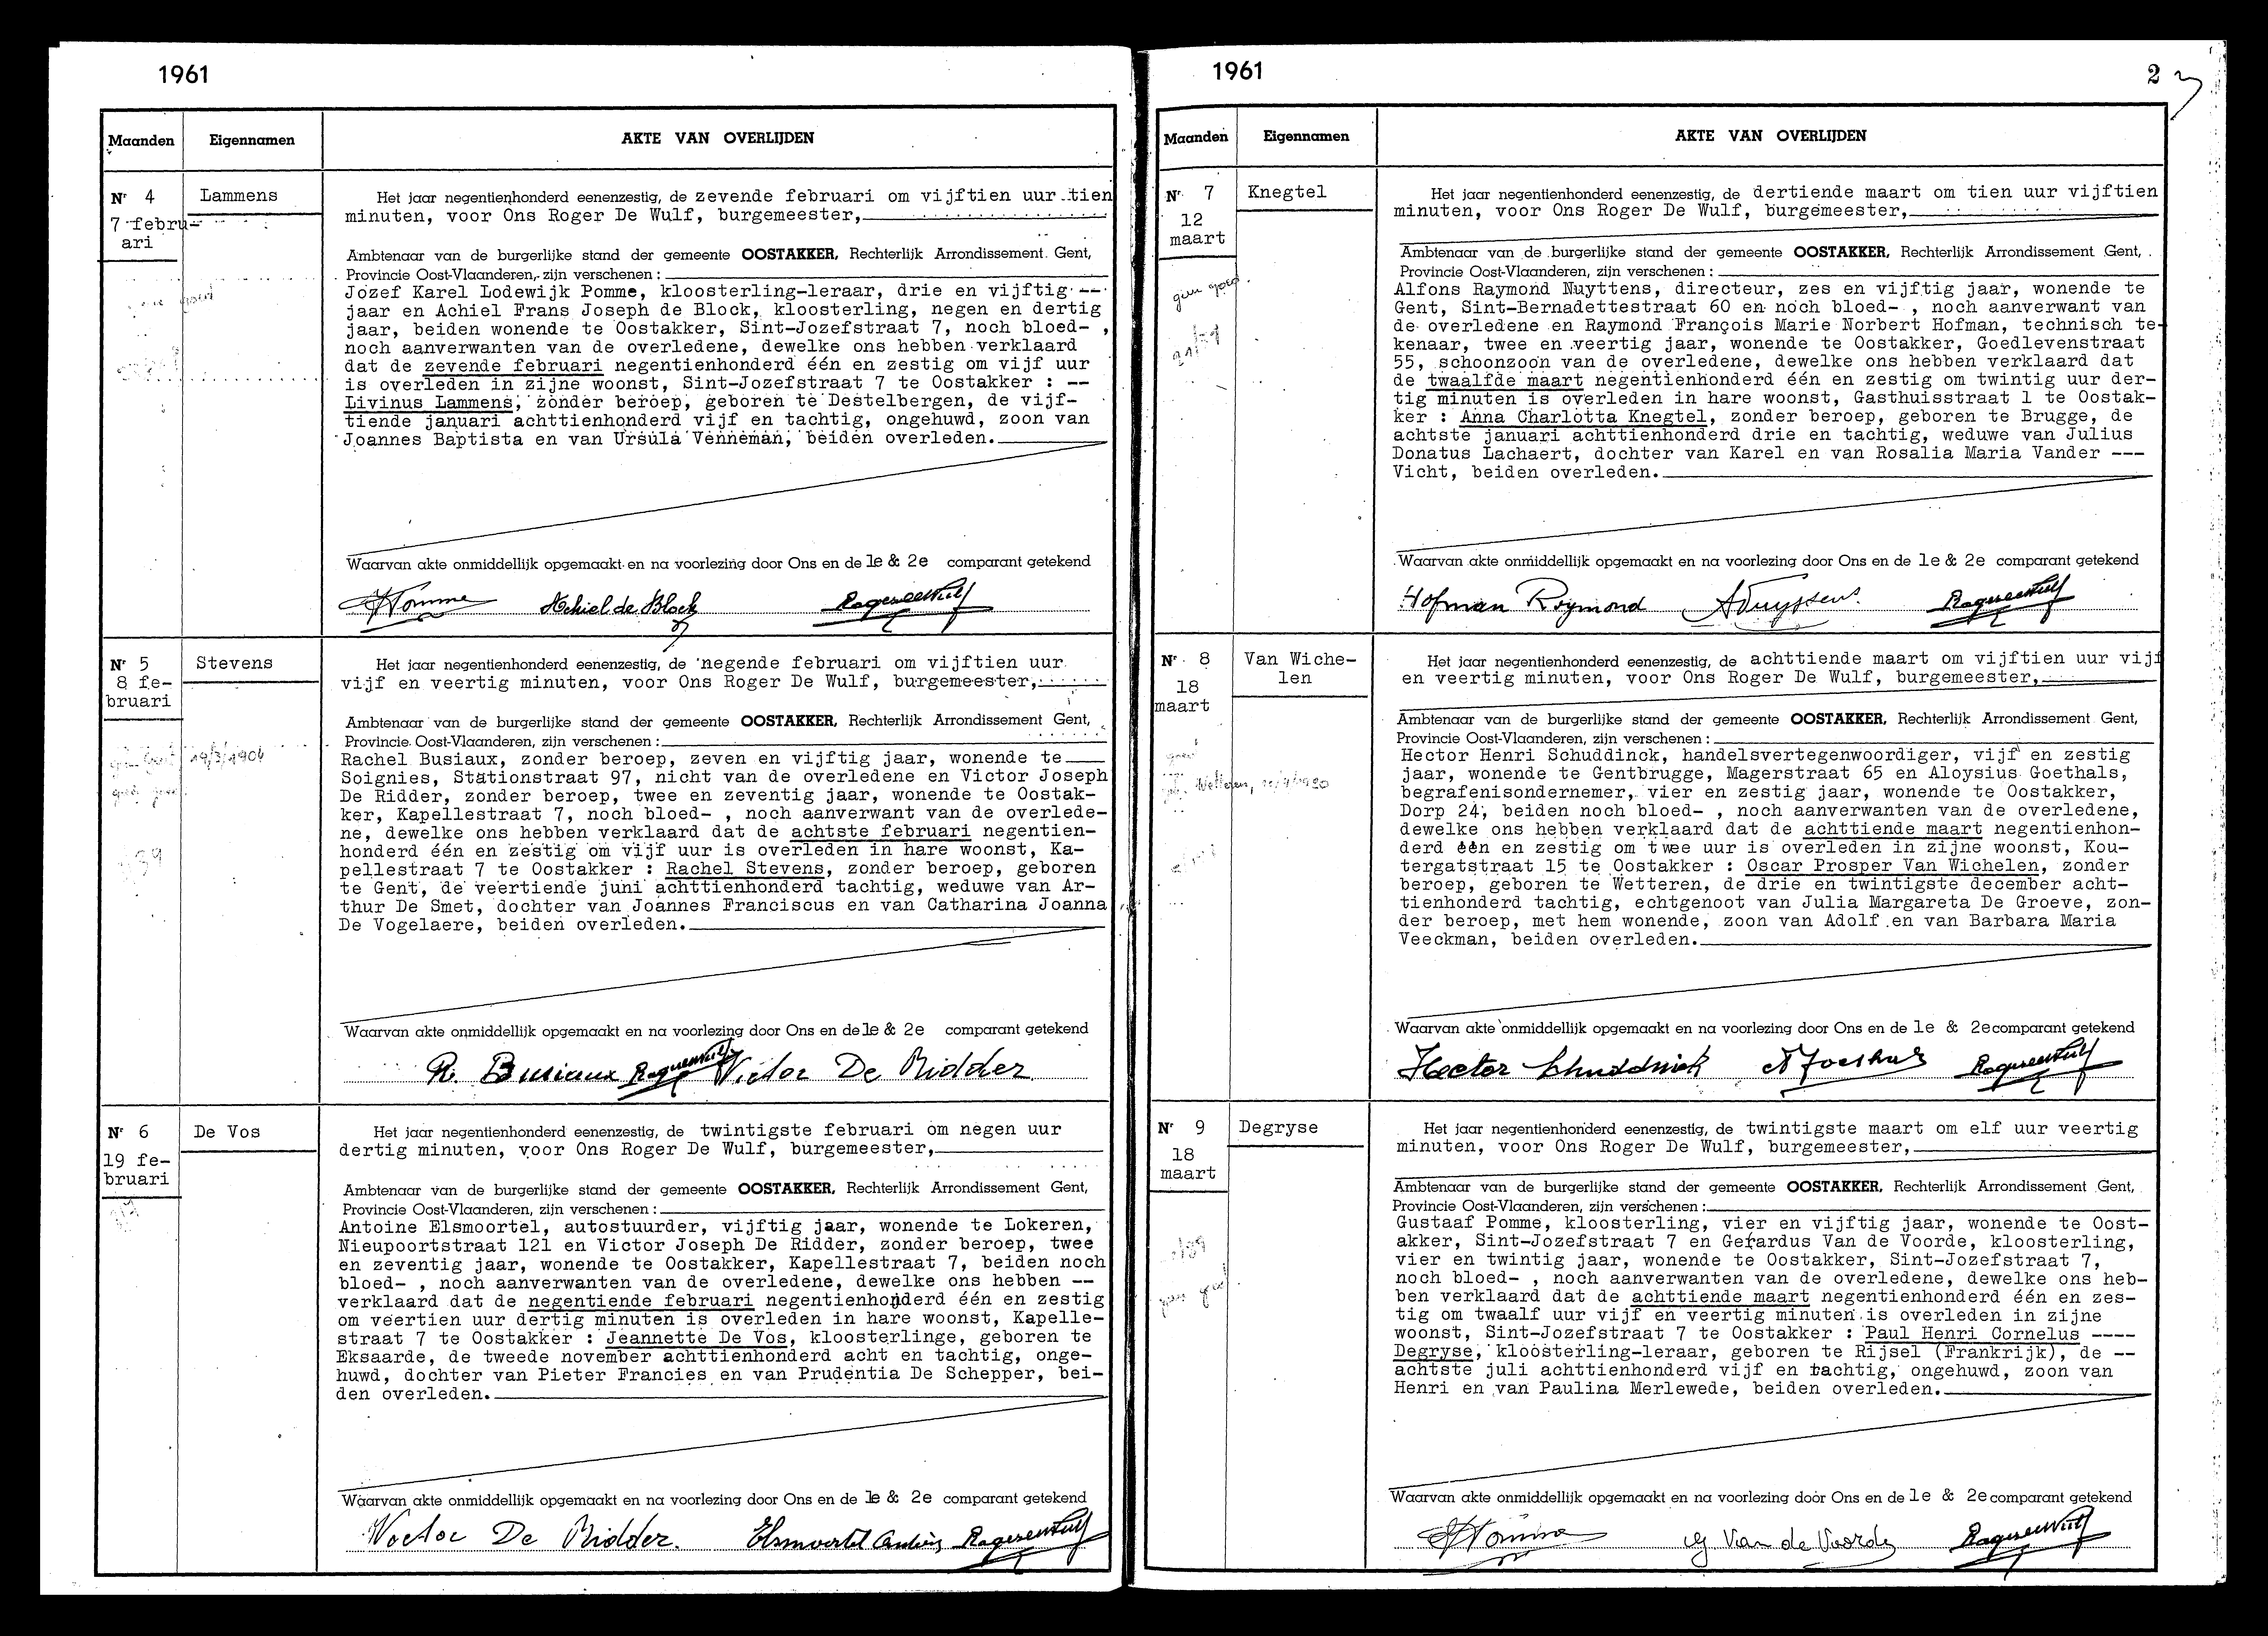 1961
Maanden
Eigennamen
AKTE VAN OVERLIJDEN
Nr 4
7 febru-
ari
Lammens
Het jaar negentienhonderd eenenzestig, de zevende februari om vijftien uur tien
minuten, voor Ons Roger De Wulf, burgemeester,
Ambtenaar van de burgerlijke stand der gemeente OOSTAKKER, Rechterlijk Arrondissement Gent,
Provincie Oost-Vlaanderen, zijn verschenen :
Jozef Karel Lodewijk Pomme, kloosterling-leraar, drie en vijftig --
jaar en Achiel Frans Joseph de Block, kloosterling, negen en dertig
jaar, beiden wonende te Oostakker, Sint-Jozefstraat 7, noch bloed- ,
noch aanverwanten van de overledene, dewelke ons hebben verklaard
dat de zevende februari negentienhonderd één en zestig om vijf uur
is overleden in zijne woonst, Sint-Jozefstraat 7 te Oostakker : --
Livinus Lammens, zonder beroep, geboren te Destelbergen, de vijf-
tiende januari achttienhonderd vijf en tachtig, ongehuwd, zoon van
Joannes Baptista en van Ursula Venneman, beiden overleden.
Waarvan akte onmiddellijk opgemaakt en na voorlezing door Ons en de 1e & 2e comparant getekend
Pomme Achiel de Block Roger De Wulf
Nr 5
8 fe-
bruari
Stevens
19/3/1904
Het jaar negentienhonderd eenenzestig, de negende februari om vijftien uur
vijf en veertig minuten, voor Ons Roger De Wulf, burgemeester,
Ambtenaar van de burgerlijke stand der gemeente OOSTAKKER, Rechterlijk Arrondissement Gent,
Provincie Oost-Vlaanderen, zijn verschenen :
Rachel Busiaux, zonder beroep, zeven en vijftig jaar, wonende te
Soignies, Stationstraat 97, nicht van de overledene en Victor Joseph
De Ridder, zonder beroep, twee en zeventig jaar, wonende te Oostak-
ker, Kapellestraat 7, noch bloed- , noch aanverwant van de overlede-
ne, dewelke ons hebben verklaard dat de achtste februari negentien-
honderd één en zestig om vijf uur is overleden in hare woonst, Ka-
pellestraat 7 te Oostakker : Rachel Stevens, zonder beroep, geboren
te Gent, de veertiende juni achttienhonderd tachtig, weduwe van Ar-
thur De Smet, dochter van Joannes Franciscus en van Catharina Joanna
De Vogelaere, beiden overleden.
Waarvan akte onmiddellijk opgemaakt en na voorlezing door Ons en de 1e & 2e comparant getekend
R. Busiaux Roger De Wulf Victor De Ridder
Nr 6
19 fe-
bruari
De Vos
Het jaar negentienhonderd eenenzestig, de twintigste februari om negen uur
dertig minuten, voor Ons Roger De Wulf, burgemeester,
Ambtenaar van de burgerlijke stand der gemeente OOSTAKKER, Rechterlijk Arrondissement Gent,
Provincie Oost-Vlaanderen, zijn verschenen :
Antoine Elsmoortel, autostuurder, vijftig jaar, wonende te Lokeren,
Nieupoortstraat 121 en Victor Joseph De Ridder, zonder beroep, twee
en zeventig jaar, wonende te Oostakker, Kapellestraat 7, beiden noch
bloed- , noch aanverwanten van de overledene, dewelke ons hebben --
verklaard dat de negentiende februari negentienhonderd één en zestig
om veertien uur dertig minuten is overleden in hare woonst, Kapelle-
straat 7 te Oostakker : Jeannette De Vos, kloosterlinge, geboren te
Eksaarde, de tweede november achttienhonderd acht en tachtig, onge-
huwd, dochter van Pieter Francies en van Prudentia De Schepper, bei-
den overleden.
Waarvan akte onmiddellijk opgemaakt en na voorlezing door Ons en de 1e & 2e comparant getekend
Victor De Ridder. Elsmoortel Roger De Wulf
1961
2
Maanden
Eigennamen
AKTE VAN OVERLIJDEN
Nr 7
12
maart
Knegtel
Het jaar negentienhonderd eenenzestig, de dertiende maart om tien uur vijftien
minuten, voor Ons Roger De Wulf, burgemeester,
Ambtenaar van de burgerlijke stand der gemeente OOSTAKKER, Rechterlijk Arrondissement Gent,
Provincie Oost-Vlaanderen, zijn verschenen :
Alfons Raymond Nuyttens, directeur, zes en vijftig jaar, wonende te
Gent, Sint-Bernadettestraat 60 en noch bloed- , noch aanverwant van
de overledene en Raymond François Marie Norbert Hofman, technisch te-
kenaar, twee en veertig jaar, wonende te Oostakker, Goedlevenstraat
55, schoonzoon van de overledene, dewelke ons hebben verklaard dat
de twaalfde maart negentienhonderd één en zestig om twintig uur der-
tig minuten is overleden in hare woonst, Gasthuisstraat 1 te Oostak-
ker : Anna Charlotta Knegtel, zonder beroep, geboren te Brugge, de
achtste januari achttienhonderd drie en tachtig, weduwe van Julius
Donatus Lachaert, dochter van Karel en van Rosalia Maria Vander ---
Vicht, beiden overleden.
Waarvan akte onmiddellijk opgemaakt en na voorlezing door Ons en de 1e & 2e comparant getekend
Hofman Raymond ANuyttens Roger De Wulf
Nr 8
18
maart
Van Wiche-
len
Wetteren,
Het jaar negentienhonderd eenenzestig, de achttiende maart om vijftien uur vijf
en veertig minuten, voor Ons Roger De Wulf, burgemeester,
Ambtenaar van de burgerlijke stand der gemeente OOSTAKKER, Rechterlijk Arrondissement Gent,
Provincie Oost-Vlaanderen, zijn verschenen :
Hector Henri Schuddinck, handelsvertegenwoordiger, vijf en zestig
jaar, wonende te Gentbrugge, Magerstraat 65 en Aloysius Goethals,
begrafenisondernemer, vier en zestig jaar, wonende te Oostakker,
Dorp 24, beiden noch bloed- , noch aanverwanten van de overledene,
dewelke ons hebben verklaard dat de achttiende maart negentienhon-
derd één en zestig om twee uur is overleden in zijne woonst, Kou-
tergatstraat 15 te Oostakker : Oscar Prosper Van Wichelen, zonder
beroep, geboren te Wetteren, de drie en twintigste december acht-
tienhonderd tachtig, echtgenoot van Julia Margareta De Groeve, zon-
der beroep, met hem wonende, zoon van Adolf en van Barbara Maria
Veeckman, beiden overleden.
Waarvan akte onmiddellijk opgemaakt en na voorlezing door Ons en de 1e & 2e comparant getekend
Hector Schuddinck A Goethals Roger De Wulf
Nr 9
18
maart
Degryse
Het jaar negentienhonderd eenenzestig, de twintigste maart om elf uur veertig
minuten, voor Ons Roger De Wulf, burgemeester,
Ambtenaar van de burgerlijke stand der gemeente OOSTAKKER, Rechterlijk Arrondissement Gent,
Provincie Oost-Vlaanderen, zijn verschenen :
Gustaaf Pomme, kloosterling, vier en vijftig jaar, wonende te Oost-
akker, Sint-Jozefstraat 7 en Gerardus Van de Voorde, kloosterling,
vier en twintig jaar, wonende te Oostakker, Sint-Jozefstraat 7,
noch bloed- , noch aanverwanten van de overledene, dewelke ons heb-
ben verklaard dat de achttiende maart negentienhonderd één en zes-
tig om twaalf uur vijf en veertig minuten is overleden in zijne
woonst, Sint-Jozefstraat 7 te Oostakker : Paul Henri Cornelus ----
Degryse, kloosterling-leraar, geboren te Rijsel (Frankrijk), de --
achtste juli achttienhonderd vijf en tachtig, ongehuwd, zoon van
Henri en van Paulina Merlewede, beiden overleden.
Waarvan akte onmiddellijk opgemaakt en na voorlezing door Ons en de 1e & 2e comparant getekend
Pomme G Van de Voorde Roger De Wulf